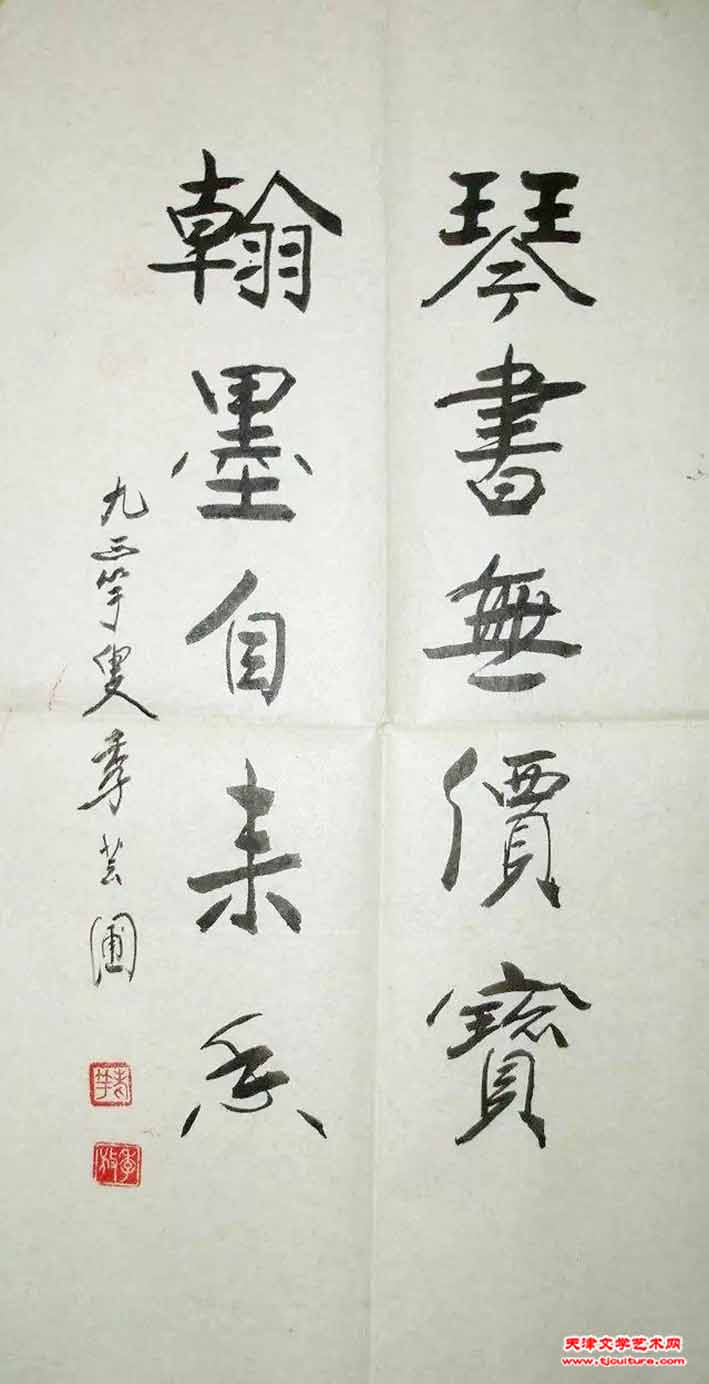 琴書無價寶
翰墨自来香
九三竽叟季芸圃
天津文学艺术网
www.tjculture.com